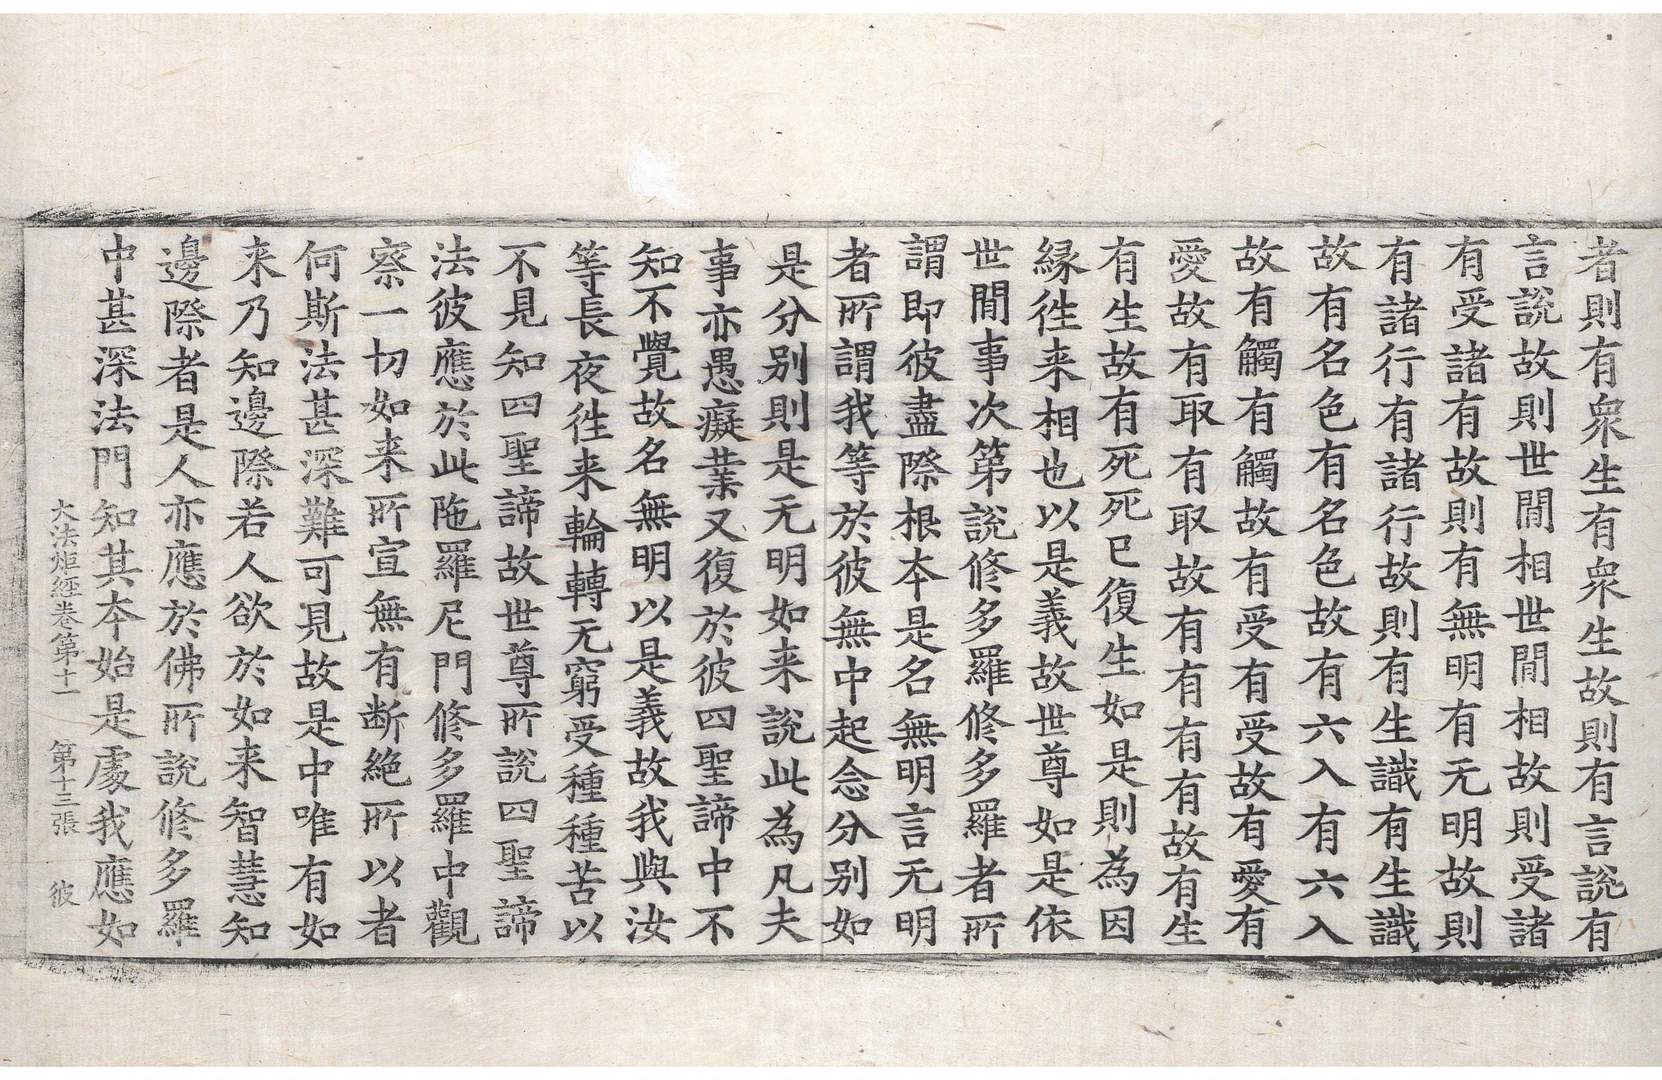 者則有衆生有衆生故則有言說有
言說故則世間相世間相故則受諸
有受諸有故則有無明有无明故則
有諸行有諸行故則有生識有生識
故有名色有名色故有六入有六入
故有觸有觸故有受有受故有愛有
愛故有取有取故有有有有故有生
有生故有死死已復生如是則為因
緣徃来相也以是義故世尊如是依
世間事次第說修多羅修多羅者所
謂即彼盡際根本是名無明言无明
者所謂我等於彼無中起念分別如
是分別則是无明如来說此為凡夫
事亦愚癡業又復於彼四聖諦中不
知不覺故名無明以是義故我與汝
等長夜徃来輪轉无窮受種種苦以
不見知四聖諦故世尊所說四聖諦
法彼應於此陁羅尼門修多羅中觀
察一切如来所宣無有断絕所以者
何斯法甚深難可見故是中唯有如
来乃知邊際若人欲於如来智慧知
邊際者是人亦應於佛所說修多羅
中甚深法門知其本始是處我應如
大法炬經卷第十一 第十三張 彼